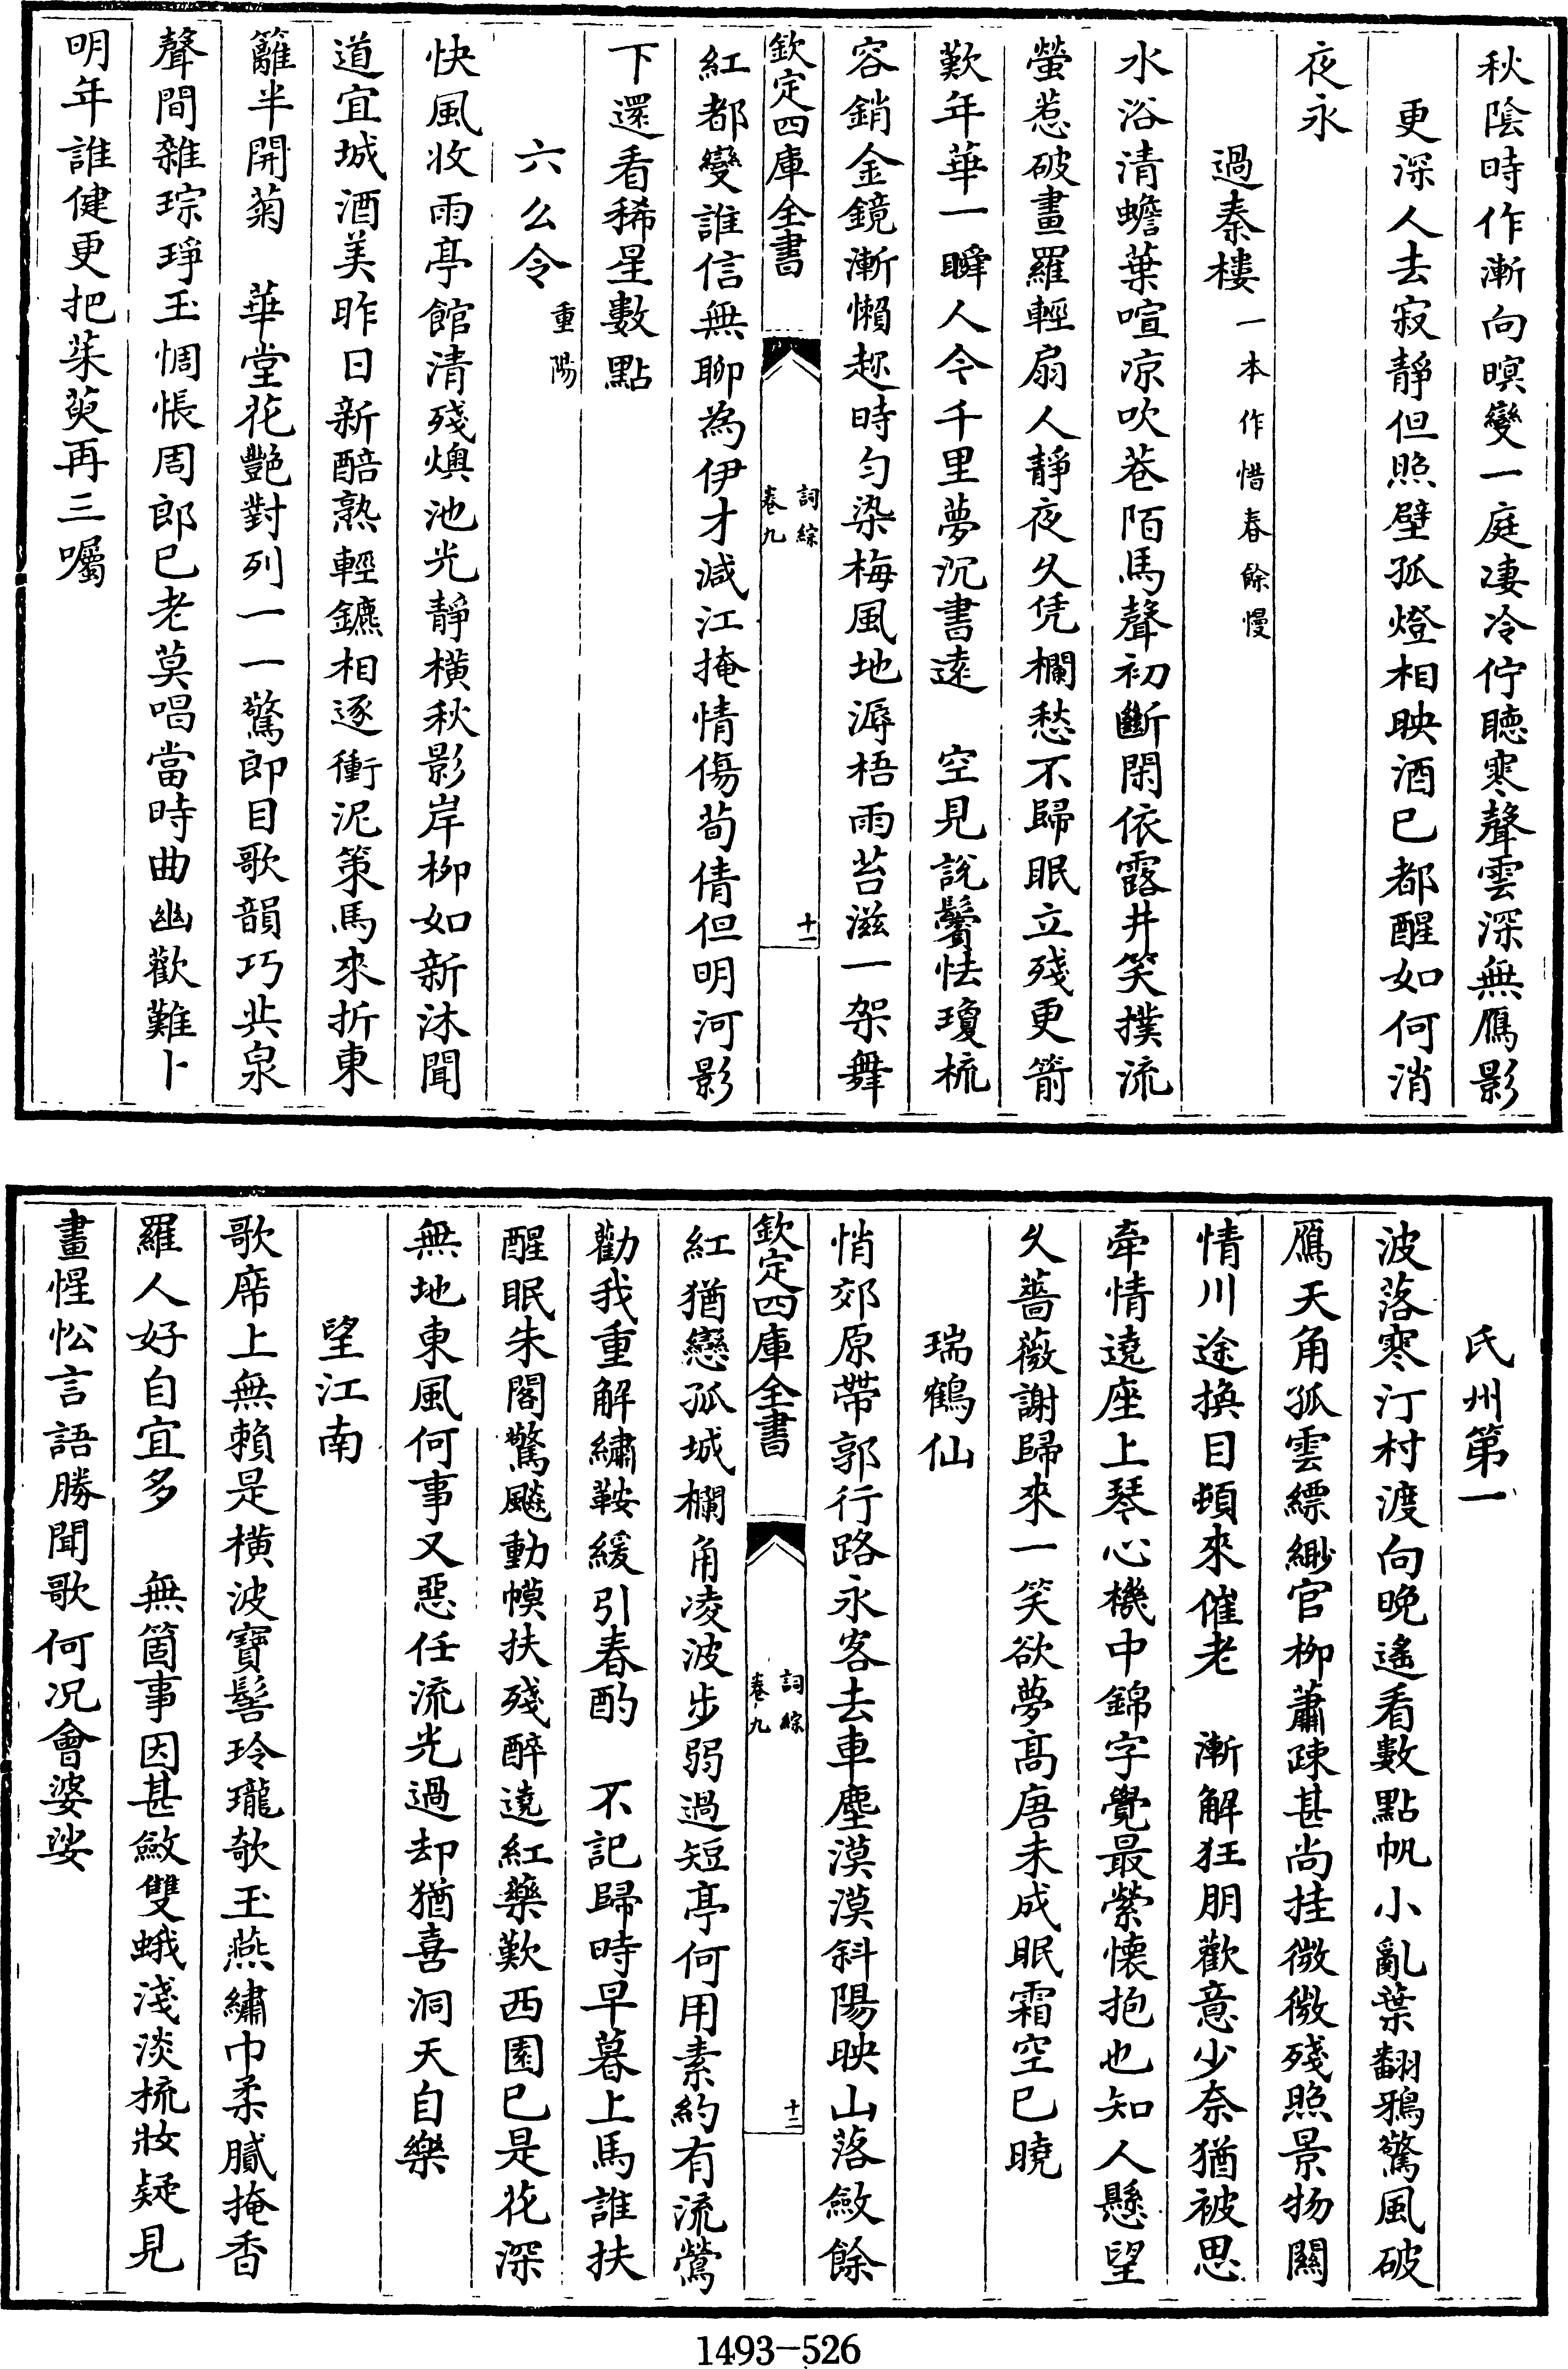 秋陰時作漸向暝變一庭凄冷佇聽寒聲雲深無鴈影
更深人去寂靜但照壁孤燈相映酒已都醒如何消
夜永
過秦樓一本作惜春餘慢
水浴清蟾葉喧凉吹巷陌馬聲初斷閑依露井笑撲流
螢惹破畫羅輕扇人靜夜久凭欄愁不歸眠立殘更箭
歎年華一瞬人今千里夢沉書遠　空見說鬢怯瓊梳
容銷金鏡漸懶趂時匀染梅風地溽梧雨苔滋一架舞
欽定四庫全書
詞綜
卷九
十一
紅都變誰信無聊為伊才減江掩情傷荀倩但明河影
下還看稀星數點
六么令重陽
快風收雨亭館清殘燠池光靜橫秋影岸柳如新沐聞
道宜城酒美昨日新醅熟輕鑣相逐衝泥策馬來折東
籬半開菊　華堂花艷對列一一驚郎目歌韻巧共泉
聲間雜琮琤玉惆悵周郎已老莫唱當時曲幽歡難卜
明年誰健更把茱萸再三囑
氏州第一
波落寒汀村渡向晚遙看數點帆小亂葉翻鴉驚風破
鴈天角孤雲縹緲官柳蕭踈甚尚挂微微殘照景物關
情川途換目頓來催老　漸解狂朋歡意少奈猶被思
牽情遶座上琴心機中錦字覺最縈懷抱也知人懸望
久薔薇謝歸來一笑欲夢髙唐未成眠霜空已曉
瑞鶴仙
悄郊原帶郭行路永客去車塵漠漠斜陽映山落斂餘
欽定四庫全書
詞綜
卷九
十二
紅猶戀孤城欄角凌波步弱過短亭何用素約有流鶯
勸我重解繡鞍緩引春酌　不記歸時早暮上馬誰扶
醒眠朱閣驚飈動幙扶殘醉遶紅藥歎西園已是花深
無地東風何事又惡任流光過却猶喜洞天自樂
望江南
歌席上無賴是橫波寶髻玲瓏欹玉燕繡巾柔膩掩香
羅人好自宜多　無箇事因甚斂雙蛾淺淡梳妝疑見
畫惺忪言語勝聞歌何况會婆娑
1493-526